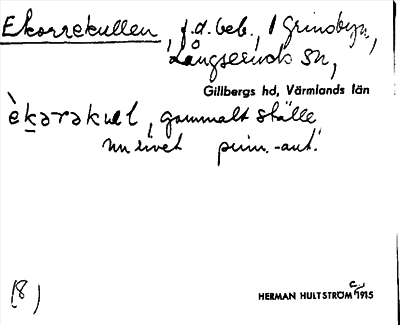 Ekorrekullen, f.d. beb., / Grinsbyn,
Långseruds sn,
Gillbergs hd, Värmlands län
èkərəkul, gammalt ställe
nu rivet prim.-ant.
(8)
HERMAN HULTSTRÖM 1915